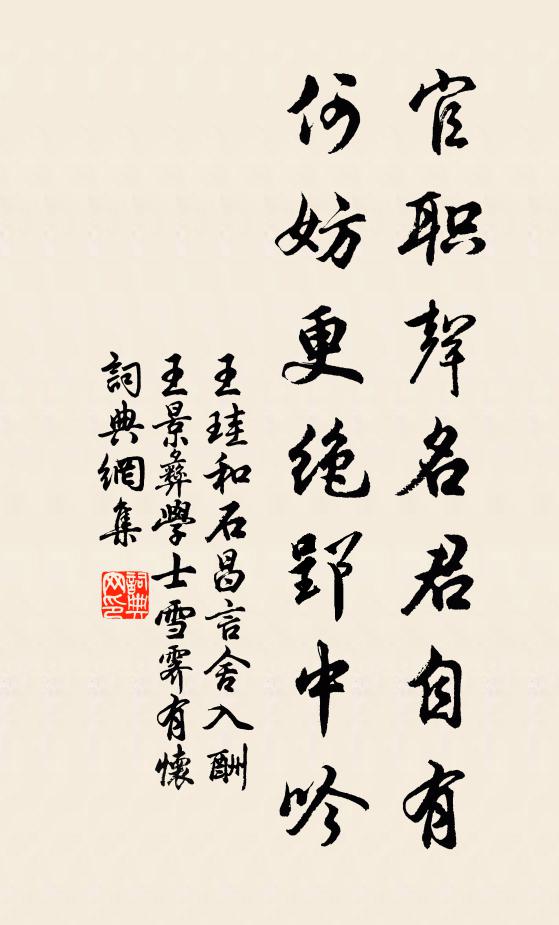 官职聲名君自有
何妨更绝郢中吟
王珪和石昌言舍入酬
王景彝學士雪霽有懷
詞典網集
詞典网印